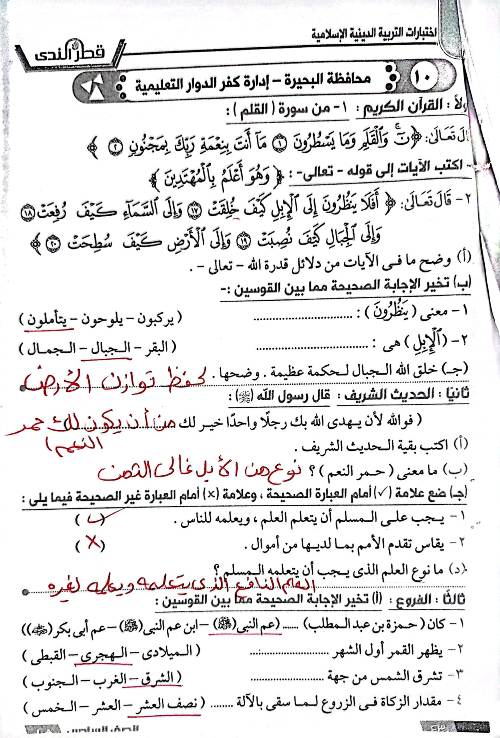 اختبارات التربية الدينية الإسلامية
قطر الندى
١٠ محافظة البحيرة – إدارة كفر الدوار التعليمية
أولاً : القرآن الكريم : ١- من سورة ( القلم ) :
قال تعالى: ﴿ نٓ وَالْقَلَمِ وَمَا يَسْطُرُونَ ١ مَا أَنتَ بِنِعْمَةِ رَبِّكَ بِمَجْنُونٍ ٢ ﴾
- اكتب الآيات إلى قوله - تعالى- : ﴿ وَهُوَ أَعْلَمُ بِالْمُهْتَدِينَ ﴾
٢- قَالَ تَعَالَى: ﴿ أَفَلَا يَنظُرُونَ إِلَى الْإِبِلِ كَيْفَ خُلِقَتْ ١٧ وَإِلَى السَّمَاءِ كَيْفَ رُفِعَتْ ١٨
وَإِلَى الْجِبَالِ كَيْفَ نُصِبَتْ ١٩ وَإِلَى الْأَرْضِ كَيْفَ سُطِحَتْ ٢٠ ﴾
(أ) وضح ما فى الآيات من دلائل قدرة الله - تعالى - .
(ب) تخير الإجابة الصحيحة مما بين القوسين :-
١- معنى ( يَنظُرُونَ ) : .................... ( يركبون – يلوحون – يتأملون )
٢- ( الْإِبِلِ ) هى : .................... ( البقر – الجبال – الجمال )
(جـ) خلق الله الجبال لحكمة عظيمة . وضحها . لحفظ توازن الأرض
ثانيًا : الحديث الشريف : قال رسول الله (ﷺ) :
( فوالله لأن يهدى الله بك رجلًا واحدًا خير لك من أن يكون لك حمر
النعم )
(أ) اكتب بقية الحديث الشريف .
(ب) ما معنى ( حمر النعم ) ؟ نوع من الإبل غالى الثمن
(جـ) ضع علامة (✓) أمام العبارة الصحيحة ، وعلامة (×) أمام العبارة غير الصحيحة فيما يلى :
١- يجب على المسلم أن يتعلم العلم ، ويعلمه للناس . ( ✓ )
٢- يقاس تقدم الأمم بما لديها من أموال . ( X )
(د) ما نوع العلم الذى يجب أن يتعلمه المسلم ؟
العلم النافع الذى يتعلمه ويعلمه لغيره
ثالثًا : الفروع : (أ) تخير الإجابة الصحيحة مما بين القوسين :
١- كان ( حمزة بن عبد المطلب ) ...... (عم النبى(ﷺ) – ابن عم النبى(ﷺ) – عم أبى بكر
٢- يظهر القمر أول الشهر .................... ( الميلادى – الهجرى – القبطى )
٣- تشرق الشمس من جهة .................... ( الشرق – الغرب – الجنوب )
٤- مقدار الزكاة فى الزروع لما سقى بالآلة ........ ( نصف العشر – العشر – الخمس )
الصف السادس